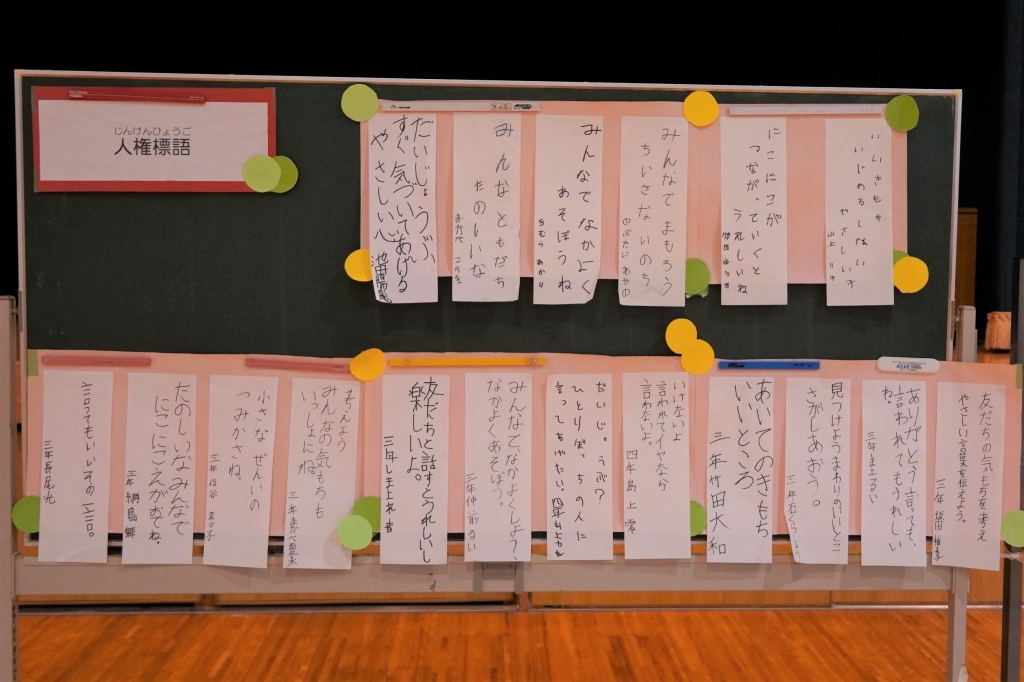 じんけんひょうご
人権標語
いいきもち
いじめるしない
やさしいき
山上 りき
にこにこが
つながっていくと
うれしいね
みんなで まもろう
ちいさな いのち
のぶたに あやの
みんなで なかよく
あそぼうね
きむら あかり
みんな ともだち
たのしいな
まかべ
だいじょうぶ、
すぐ気づいてあげる
やさしい心
池田
友だちの気もちを考え
やさしい言葉を伝えよう。
三年 坂田
ありがとう言っても、
言われてもうれしい
ね。
三年
見つけようまわりのいいとこ
さがしあおう。
三年 石くら
あいてのきもち
いいところ
三年 竹田大和
いけないよ
言われてイヤなら
言わないよ。
四年 島上 零
だいじょうぶ?
ひとりぼっちの人に
言ってあげたい。
四年
みんなで、なかよくしよう、
なかよくあそぼう。
三年 仲前 るい
友だちと話すとうれしいし
楽しいよ。
三年
考えよう
みんなの気もちも
いっしょにね。
三年 まかべ
小さな ぜんいの
つみかさね。
三年 信谷 菜々子
たのしいな みんなで
にこにこ えがおでね。
三年 綱島
言ってもいい その一言。
三年 長尾